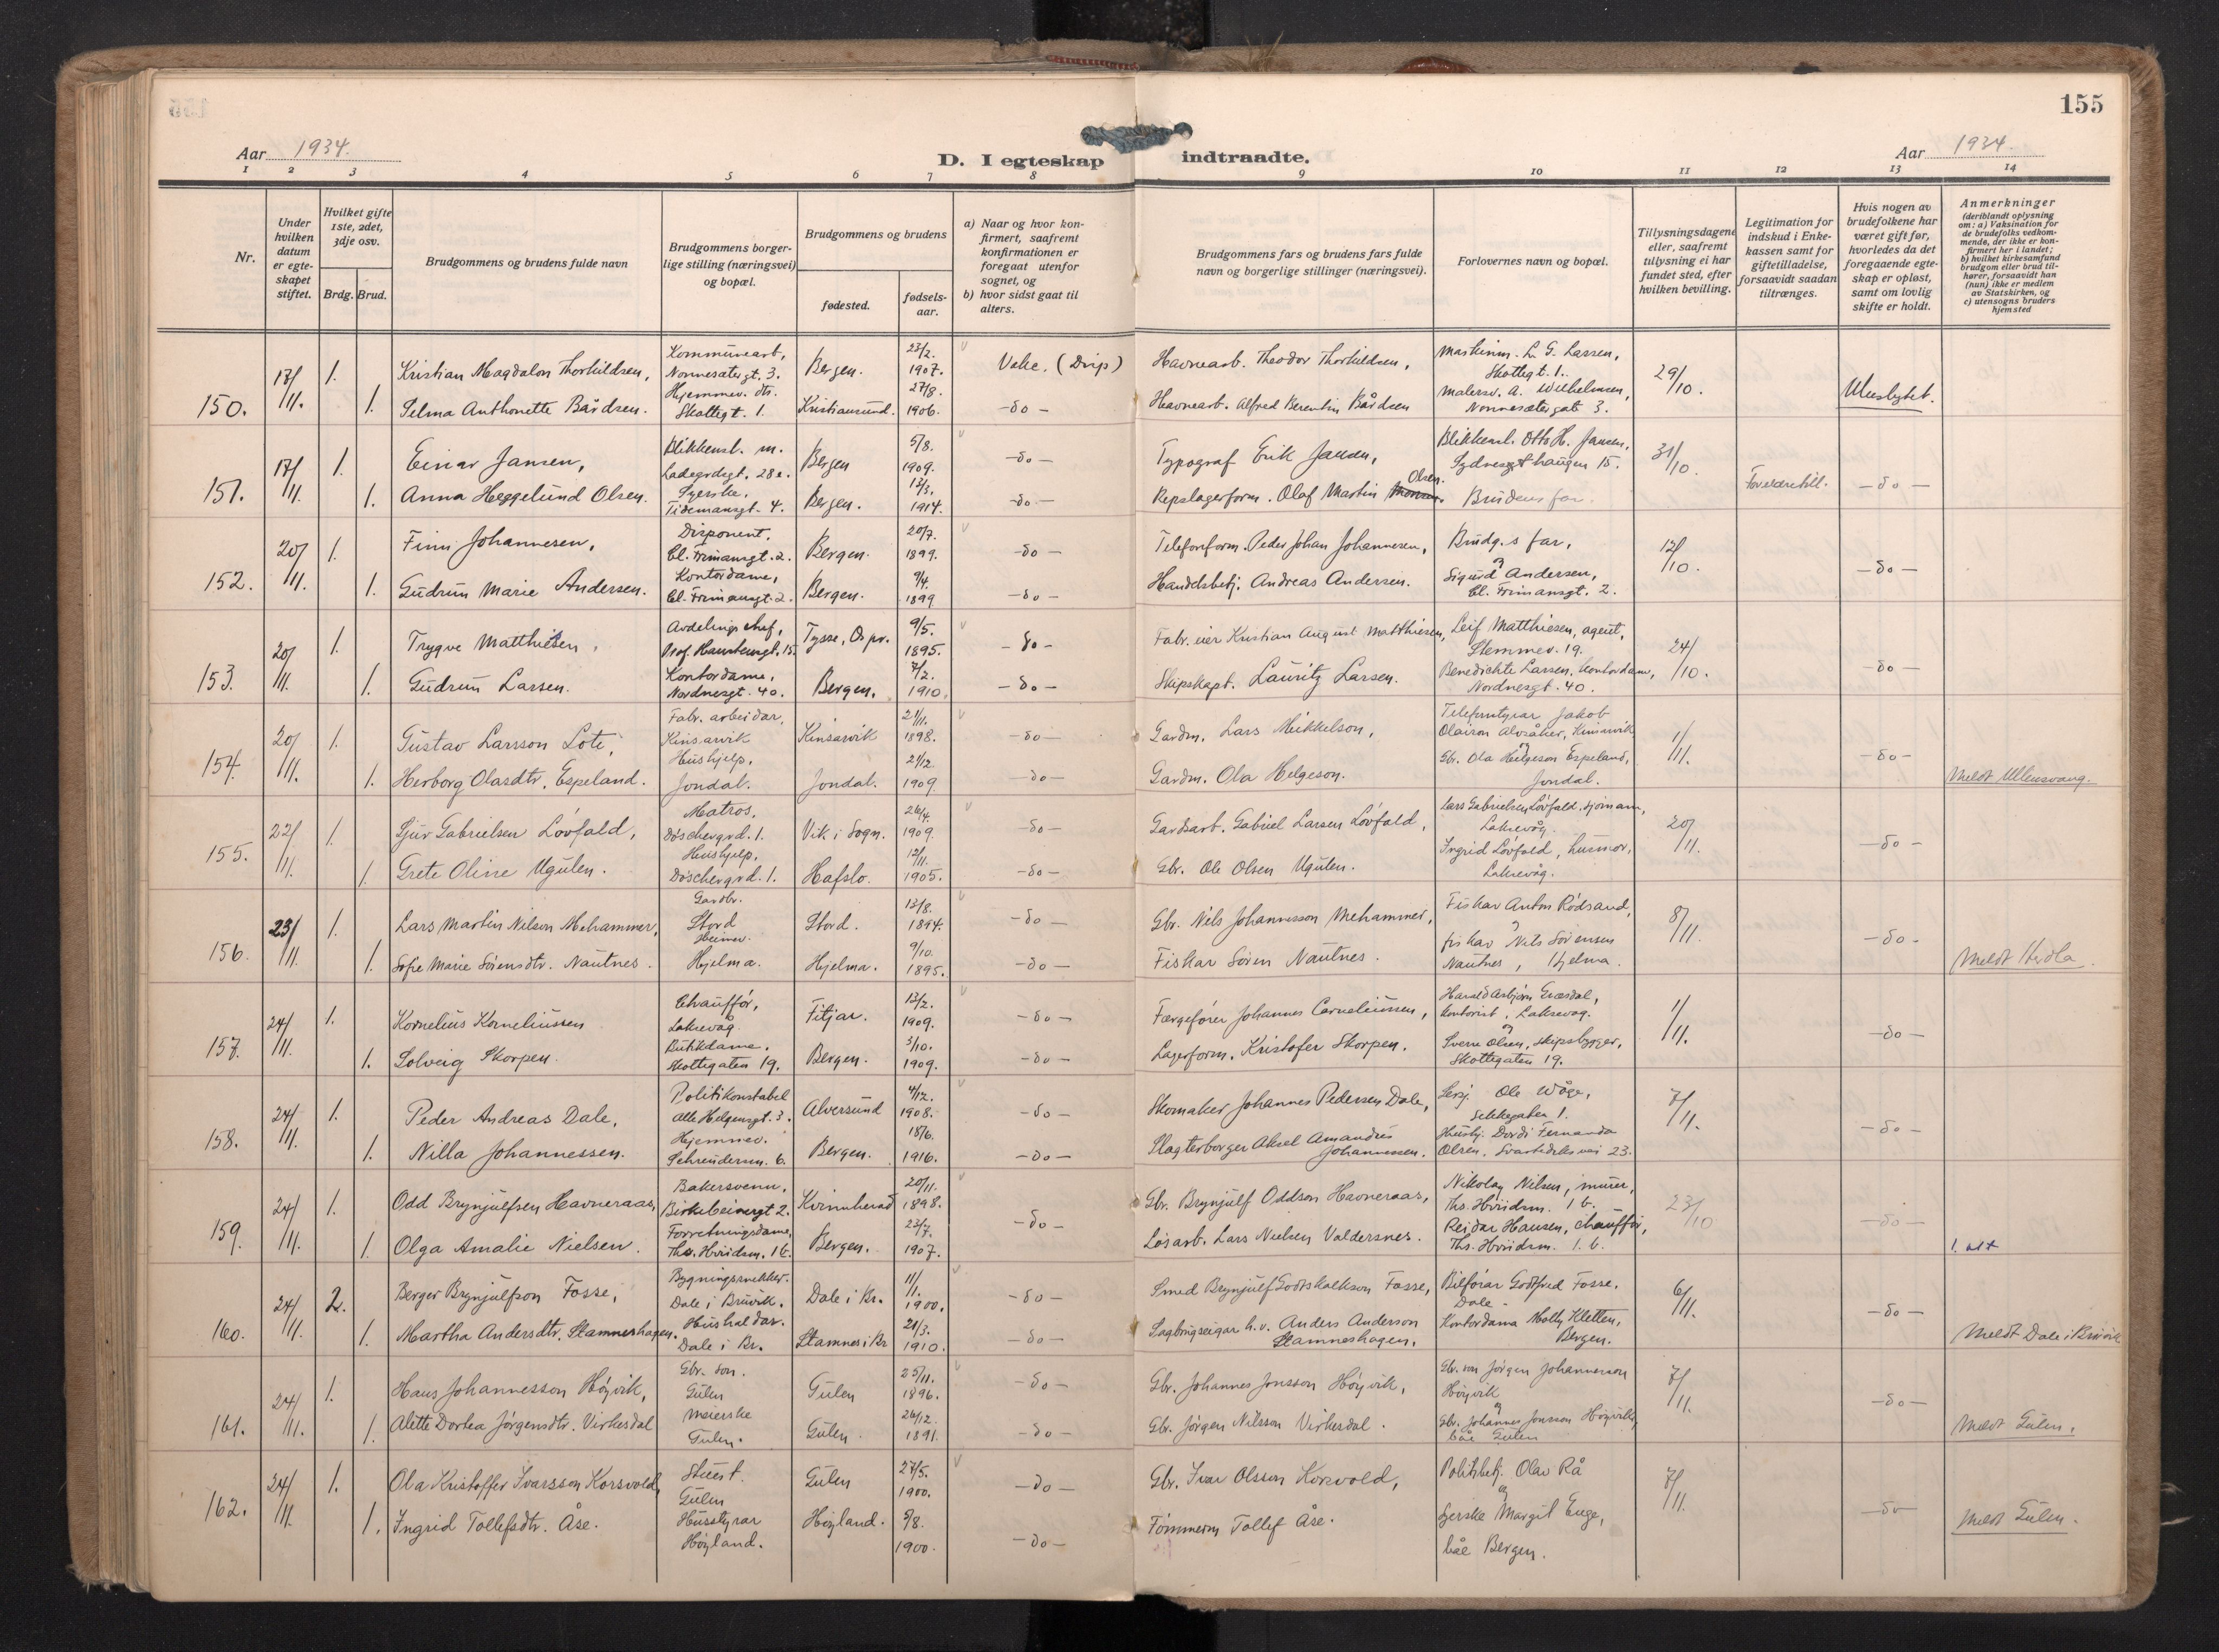 155
Aar 1934.
D. I egteskap indtraadte.
Aar 1934.
1 2 3 4 5 6 7 8 9 10 11 12 13 14
Nr.
Under hvilken datum er egteskapet stiftet.
Hvilket gifte 1ste, 2det, 3dje osv.
Brdg. Brud.
Brudgommens og brudens fulde navn
Brudgommens borgerlige stilling (næringsvei) og bopæl.
Brudgommens og brudens
fødested.
fødselsaar.
a) Naar og hvor konfirmert, saafremt konfirmationen er foregaat utenfor sognet, og
b) hvor sidst gaat til alters.
Brudgommens fars og brudens fars fulde navn og borgerlige stillinger (næringsvei).
Forlovernes navn og bopæl.
Tillysningsdagene eller, saafremt tillysning ei har fundet sted, efter hvilken bevilling.
Legitimation for indskud i Enkekassen samt for giftetilladelse, forsaavidt saadan tiltrænges.
Hvis nogen av brudefolkene har været gift før, hvorledes da det foregaaende egteskap er opløst, samt om lovlig skifte er holdt.
Anmerkninger
(deriblandt oplysning om: a) Vaksination for de brudefolks vedkommende, der ikke er konfirmert her i landet; b) hvilket kirkesamfund brudgom eller brud tilhører, forsaavidt han (hun) ikke er medlem av Statskirken, og c) utensogns bruders hjemsted
150. 17/11. 1. Kristian Magdalon Thorkildsen, Kommunearb, Nonnesætergt. 3. Bergen. 23/2. 1907. Havnearb. Theodor Thorkildsen, Maskinm. L. G. Larsen, Skottegt. 1. 29/10.
1. Selma Anthonette Bårdsen. Hjemmev. dtr. Skottegt. 1. Kristiansund. 27/8. 1906. -do- Havnearb. Alfred Berentin Bårdsen Malersv. A. Wilhelmsen, Nonnesætergate 3.
151. 17/11. 1. Einar Jansen, Blikkensl. m. Ladegrdsgt. 28e. Bergen 5/8. 1909. -do- Typograf Erik Jansen, Blikkensl. Otto H. Jansen, Sydneshaugen 15. 31/10. Foreldretill. -do-
1. Anna Heggelund Olsen. Syerske, Tidemansgt. 4. Bergen. 13/3. 1914. -do- Repslagerform. Olaf Martin Olsen. Brudens far.
152. 20/11. 1. Finn Johannesen, Disponent, Cl. Frimansgt. 2. Bergen. 20/7. 1899. -do- Telefonform. Peder Johan Johannesen, Brudg.s far, 12/10. -do-
1. Gudrun Marie Andersen. Kontordame, Cl. Frimansgt. 2. Bergen. 9/4. 1899 -do- Handelsbetj. Andreas Andersen. og Sigurd Andersen, Cl. Frimansgt. 2.
153. 20/11. 1. Trygve Matthiesen, Avdelingschef, Prof. Hansteensgt. 15. Tysse, Os pr. 9/5. 1895. -do- Fabr. eier Kristian August Matthiesen, Leif Matthiesen, agent, Stemmev. 19. 24/10. -do-
1. Gudrun Larsen. Kontordame, Nordnesgt. 40. Bergen. 7/2. 1910. -do- Skipskapt. Lauritz Larsen. Benedichte Larsen, kontordame, Nordnesgt. 40.
154. 20/11. 1. Gustav Larsson Lote, Fabr. arbeidar, Kinsarvik Kinsarvik 21/11. 1898. -do- Gardm. Lars Mikkelson, Telefonstyrar Jakob Olairson Alvsåker, Kinsarvik 1/11. -do-
1. Herborg Olasdtr. Espeland. Hushjelp, Jondal. Jondal. 21/12. 1909. -do- Gardm. Ola Helgeson. og Gbr. Ola Helgeson Espeland, Jondal. Meldt Ullensvang.
155. 22/11. 1. Sjur Gabrielsen Lövfald, Matros, Döschergrd. 1. Vik i Sogn. 26/4. 1909. -do- Gardsarb. Gabriel Larsen Lövfald, Lars Gabrielsen Lövfald, sjömann, Laksevåg. 20/11. -do-
1. Grete Oline Ugulen. Hushjelp, Döschergrd. 1. Hafslo. 12/11. 1905. -do- Gbr. Ole Olsen Ugulen. Ingrid Lövfald, husmor, Laksevåg.
156. 23/11. 1. Lars Martin Nilson Mehammer, Gardbr. Stord Stord. 13/8. 1894. -do- Gbr. Nils Johannesson Mehammer, Fiskar Anton Rödsand, 8/11. -do-
1. Sofie Marie Sörensdtr. Nautnes. Heimev. Hjelma. Hjelma. 9/10. 1895. -do- Fiskar Sören Nautnes. og fiskar Nils Sörensen Nautnes, Hjelma. Meldt Herdla.
157. 24/11. 1. Kornelius Korneliussen Chauffør, Laksevåg. Fitjar. 13/2. 1909. -do- Færgefører Johannes Corneliussen, Harald Asbjörn Græsdal, kontorist, Laksevåg. 1/11. -do-
1. Solveig Skorpen. Butikdame, Skottegaten 19. Bergen. 5/10. 1909. -do- Lagerform. Kristofer Skorpen. og Sverre Olsen, skipsbygger, Skottegaten 19.
158. 24/11. 1. Peder Andreas Dale, Politikonstabel Alle Helgensgt. 3. Alversund 4/12. 1908. -do- Skomaker Johannes Pedersen Dale, Sersj. Ole Wåge, 7/11. -do-
1. Nilla Johannessen. Hjemmev. Schreudersm. 6. Bergen. 18/6. 1916. -do- Slagterborger Aksel Amandus Johannessen. Hushj. Dordi Fernanda Olsen, Svartediksvei 23.
159. 24/11. 1. Odd Brynjulfsen Havneraas, Bakersvenn, Birkebeinergt 2. Kvinnherad 20/11. 1898. -do- Gbr. Brynjulf Oddson Havneraas, Nikolay Nilsen, murer, Ths. Hviidsm. 1 b. 23/10 -do-
1. Olga Amalie Nielsen. Forretningsdame, Ths. Hviidsm. 1 b. Bergen. 23/7. 1907. Løsarb. Lars Nielsen Valdersnes. Reidar Hansen, chauffør, Ths. Hviidsm. 1. b. 1. att
160. 24/11. 2. Berger Brynjulfson Fosse, Bygningssnekker. Dale i Bruvik. Dale i Br. 11/1. 1900. -do- Smed Brynjulf Godtskalkson Fosse, Bilførar Godtfred Fosse, Dale. 6/11. -do-
1. Martha Andersdtr. Stamneshagen. Hushaldar. Dale i Br. Stamnes i Br 21/3. 1910. -do- Sagbrugseigar h.v. Anders Anderson Stamneshagen. Kontordama Molly Kletten, Bergen. Meldt Dale i Bruvik
161. 24/11. 1. Hans Johannesson Höyvik, Gbr. son. Gulen Gulen 25/11. 1896. -do- Gbr. Johannes Jonsson Höyvik, Gbr. son Jørgen Johannesson Höyvik 7/11. -do-
1. Alette Dorthea Jørgensdtr. Virkesdal Meierske Gulen. Gulen. 26/12. 1891. -do- Gbr. Jørgen Nilsson Virkesdal. og Gbr. Johannes Jonsson Höyvik, båe Gulen Meldt Gulen.
162. 24/11. 1. Ola Kristoffer Ivarsson Korsvold, Stuert. Gulen Gulen 27/5. 1900. -do- Gbr. Ivar Olsson Korsvold, Politibetj. Olav Rå 7/11. -do-
1. Ingrid Tollefsdtr. Åse. Husstyrar Høyland. Høyland. 5/8. 1900. -do- Tømmerm Tollef Åse. og Syerske Margit Enge, båe Bergen. Meldt Gulen.